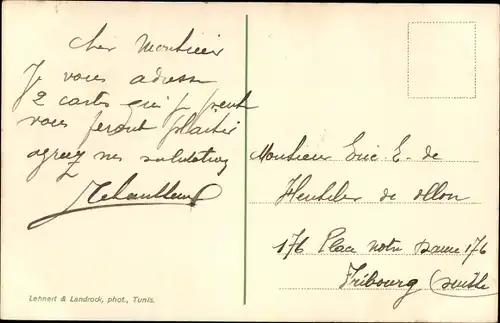 cher Monsieur
Je vous adresse
2 cartes qui je pense
vous feront plaisir
agreez mes salutations
Monsieur Eric E. de
de
176 Place Notre Dame 176
Fribourg (Suisse
Lehnert & Landrock, phot., Tunis.